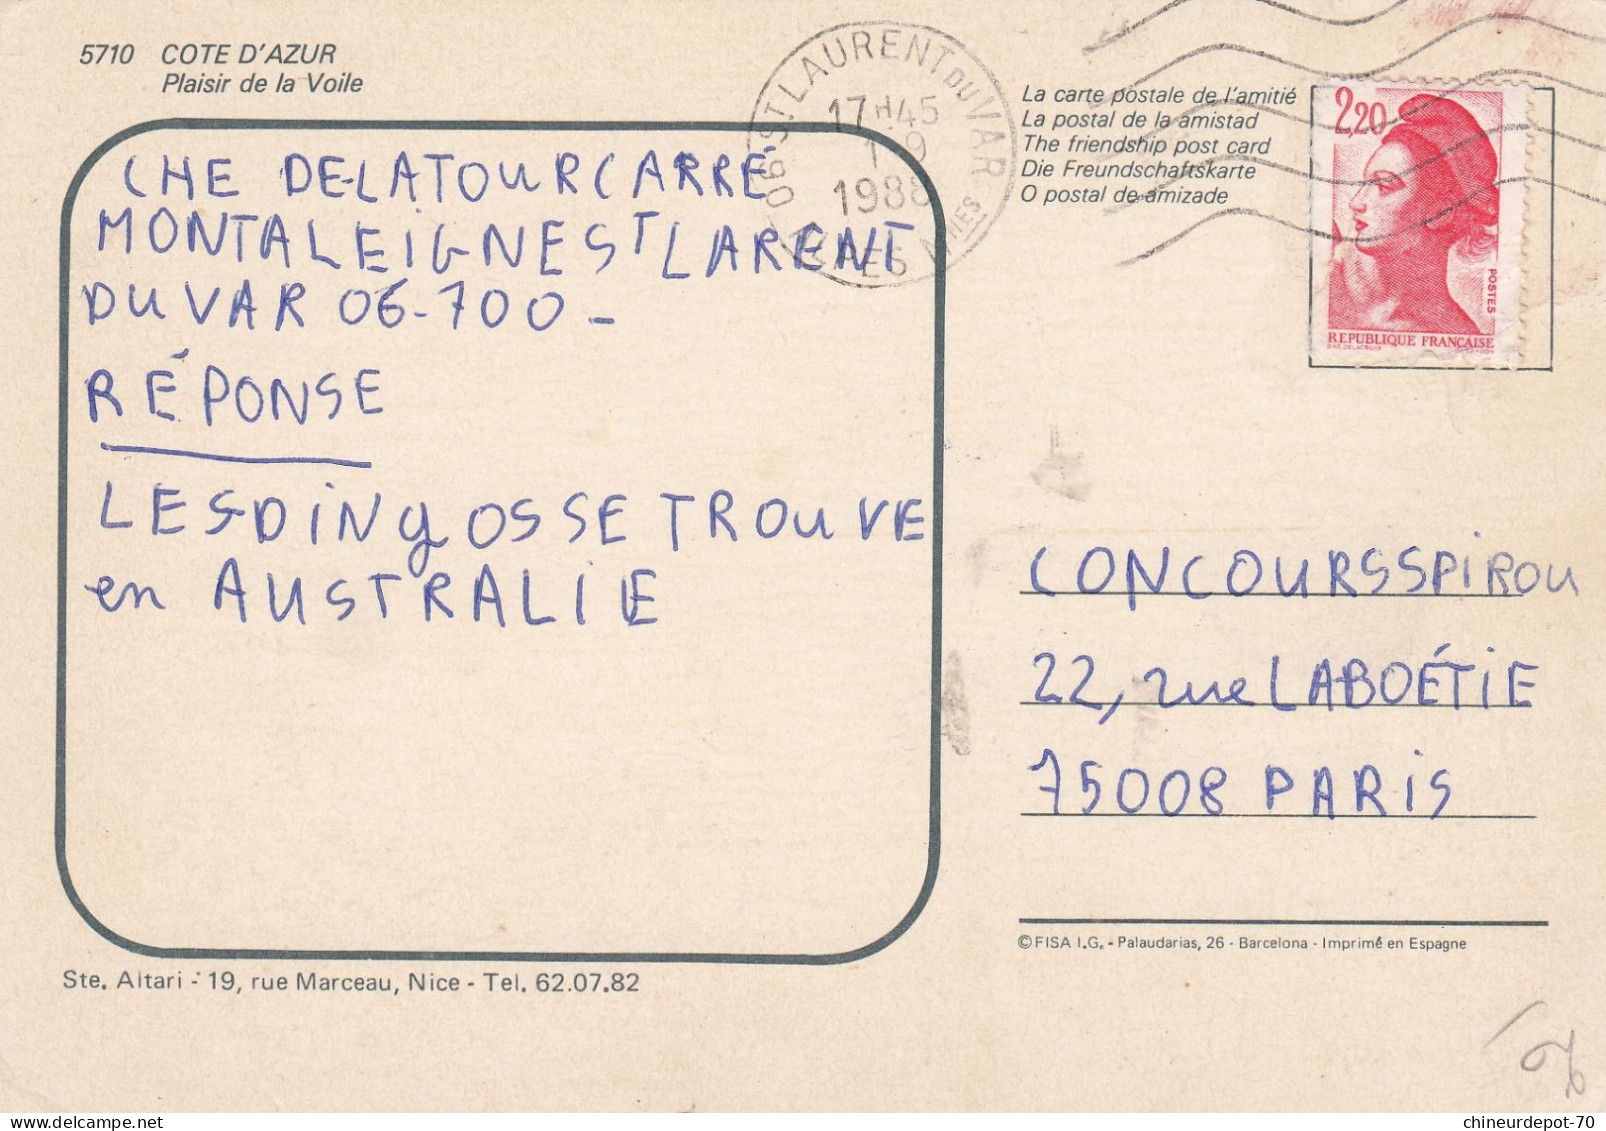 5710 COTE D'AZUR
Plaisir de la Voile
CHE DE LA TOUR CARRÉ
MONTALEIGNE ST LARENT
DU VAR 06-700-
RÉPONSE
LES DiNyOS SE TROUVE
en AUSTRALIE
Ste. Altari - 19, rue Marceau, Nice - Tel. 62.07.82
06 ST LAURENT DU VAR
17H45
1 9
1988
ALPES MMES
La carte postale de l'amitié
La postal de la amistad
The friendship post card
Die Freundschaftskarte
O postal de amizade
2,20
POSTES
REPUBLIQUE FRANÇAISE
CONCOURS SPiROU
22, rue LABOÉTiE
75008 PARiS
© FISA I.G. - Palaudarias, 26 - Barcelona - Imprimé en Espagne
chineurdepot-70